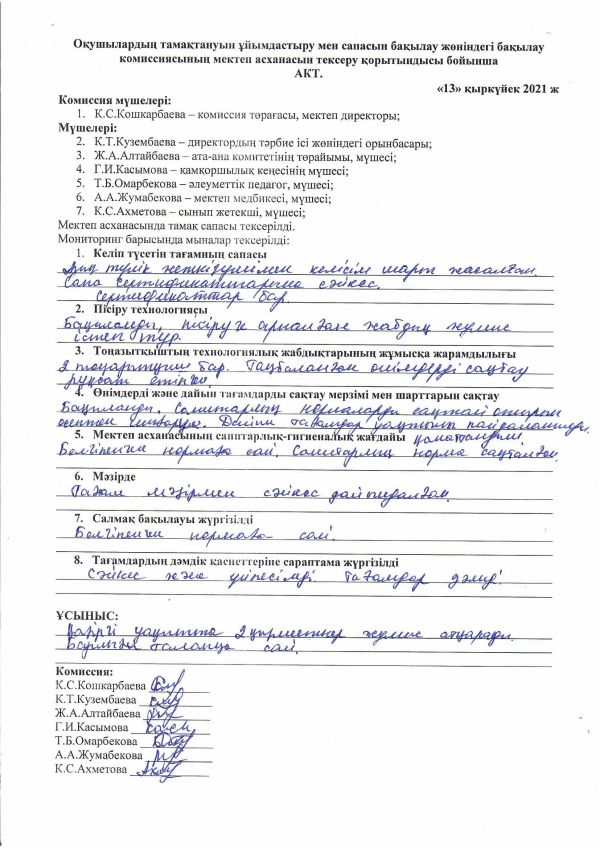 Оқушылардың тамақтануын ұйымдастыру мен сапасын бақылау жөніндегі бақылау
комиссиясының мектеп асханасын тексеру қорытындысы бойынша
АКТ.
«13» қыркүйек 2021 ж
Комиссия мүшелері:
1. К.С.Кошкарбаева – комиссия төрағасы, мектеп директоры;
Мүшелері:
2. К.Т.Кузембаева – директордың тәрбие ісі жөніндегі орынбасары;
3. Ж.А.Алтайбаева – ата-ана комитетінің төрайымы, мүшесі;
4. Г.И.Касымова – қамқоршылық кеңесінің мүшесі;
5. Т.Б.Омарбекова – әлеуметтік педагог, мүшесі;
6. А.А.Жумабекова – мектеп медбикесі, мүшесі;
7. К.С.Ахметова – сынып жетекші, мүшесі;
Мектеп асханасында тамақ сапасы тексерілді.
Мониторинг барысында мыналар тексерілді:
1. Келіп түсетін тағамның сапасы
келісім шарт жасалған.
Сапа сертификаттарына сәйкес.
Сертификаттар бар.
2. Пісіру технологиясы
пісіруге арналған жабдық жұмыс
істеп тұр.
3. Тоңазытқыштың технологиялық жабдықтарының жұмысқа жарамдылығы
2 бар. Таңбаланған өнімдерді сақтау
4. Өнімдерді және дайын тағамдарды сақтау мерзімі мен шарттарын сақтау
Бақыланды. Санитарлық нормаларды сақтай отырып
Дайын тағамдар уақтылы
5. Мектеп асханасының санитарлық-гигиеналық жағдайы қанағаттанарлық
Белгіленген нормаға сай. Санитарлық норма сақталған.
6. Мәзірде
Тағам мәзірмен сәйкес дайындалған.
7. Салмақ бақылауы жүргізілді
Белгіленген нормаға сай.
8. Тағамдардың дәмдік қасиеттеріне сараптама жүргізілді
Сәйкес және үйлесімді. Тағамдар дәмді.
ҰСЫНЫС:
Қазіргі уақытта 2 қызметкер жұмыс атқарады.
Барлығы талапқа сай.
Комиссия:
К.С.Кошкарбаева
К.Т.Кузембаева
Ж.А.Алтайбаева
Г.И.Касымова
Т.Б.Омарбекова
А.А.Жумабекова
К.С.Ахметова